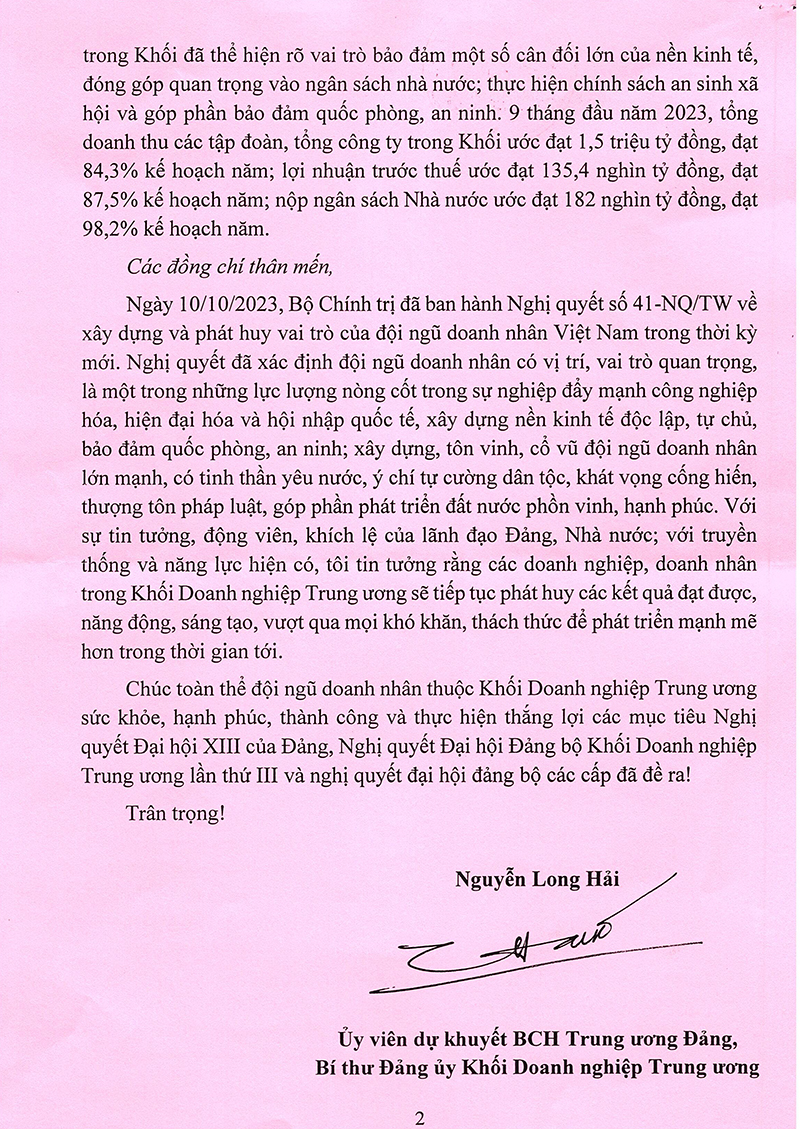 trong Khối đã thể hiện rõ vai trò bảo đảm một số cân đối lớn của nền kinh tế,
đóng góp quan trọng vào ngân sách nhà nước; thực hiện chính sách an sinh xã
hội và góp phần bảo đảm quốc phòng, an ninh. 9 tháng đầu năm 2023, tổng
doanh thu các tập đoàn, tổng công ty trong Khối ước đạt 1,5 triệu tỷ đồng, đạt
84,3% kế hoạch năm; lợi nhuận trước thuế ước đạt 135,4 nghìn tỷ đồng, đạt
87,5% kế hoạch năm; nộp ngân sách Nhà nước ước đạt 182 nghìn tỷ đồng, đạt
98,2% kế hoạch năm.
Các đồng chí thân mến,
Ngày 10/10/2023, Bộ Chính trị đã ban hành Nghị quyết số 41-NQ/TW về
xây dựng và phát huy vai trò của đội ngũ doanh nhân Việt Nam trong thời kỳ
mới. Nghị quyết đã xác định đội ngũ doanh nhân có vị trí, vai trò quan trọng,
là một trong những lực lượng nòng cốt trong sự nghiệp đẩy mạnh công nghiệp
hóa, hiện đại hóa và hội nhập quốc tế, xây dựng nền kinh tế độc lập, tự chủ,
bảo đảm quốc phòng, an ninh; xây dựng, tôn vinh, cổ vũ đội ngũ doanh nhân
lớn mạnh, có tinh thần yêu nước, ý chí tự cường dân tộc, khát vọng cống hiến,
thượng tôn pháp luật, góp phần phát triển đất nước phồn vinh, hạnh phúc. Với
sự tin tưởng, động viên, khích lệ của lãnh đạo Đảng, Nhà nước; với truyền
thống và năng lực hiện có, tôi tin tưởng rằng các doanh nghiệp, doanh nhân
trong Khối Doanh nghiệp Trung ương sẽ tiếp tục phát huy các kết quả đạt được,
năng động, sáng tạo, vượt qua mọi khó khăn, thách thức để phát triển mạnh mẽ
hơn trong thời gian tới.
Chúc toàn thể đội ngũ doanh nhân thuộc Khối Doanh nghiệp Trung ương
sức khỏe, hạnh phúc, thành công và thực hiện thắng lợi các mục tiêu Nghị
quyết Đại hội XIII của Đảng, Nghị quyết Đại hội Đảng bộ Khối Doanh nghiệp
Trung ương lần thứ III và nghị quyết đại hội đảng bộ các cấp đã đề ra!
Trân trọng!
Nguyễn Long Hải
Ủy viên dự khuyết BCH Trung ương Đảng,
Bí thư Đảng ủy Khối Doanh nghiệp Trung ương
2